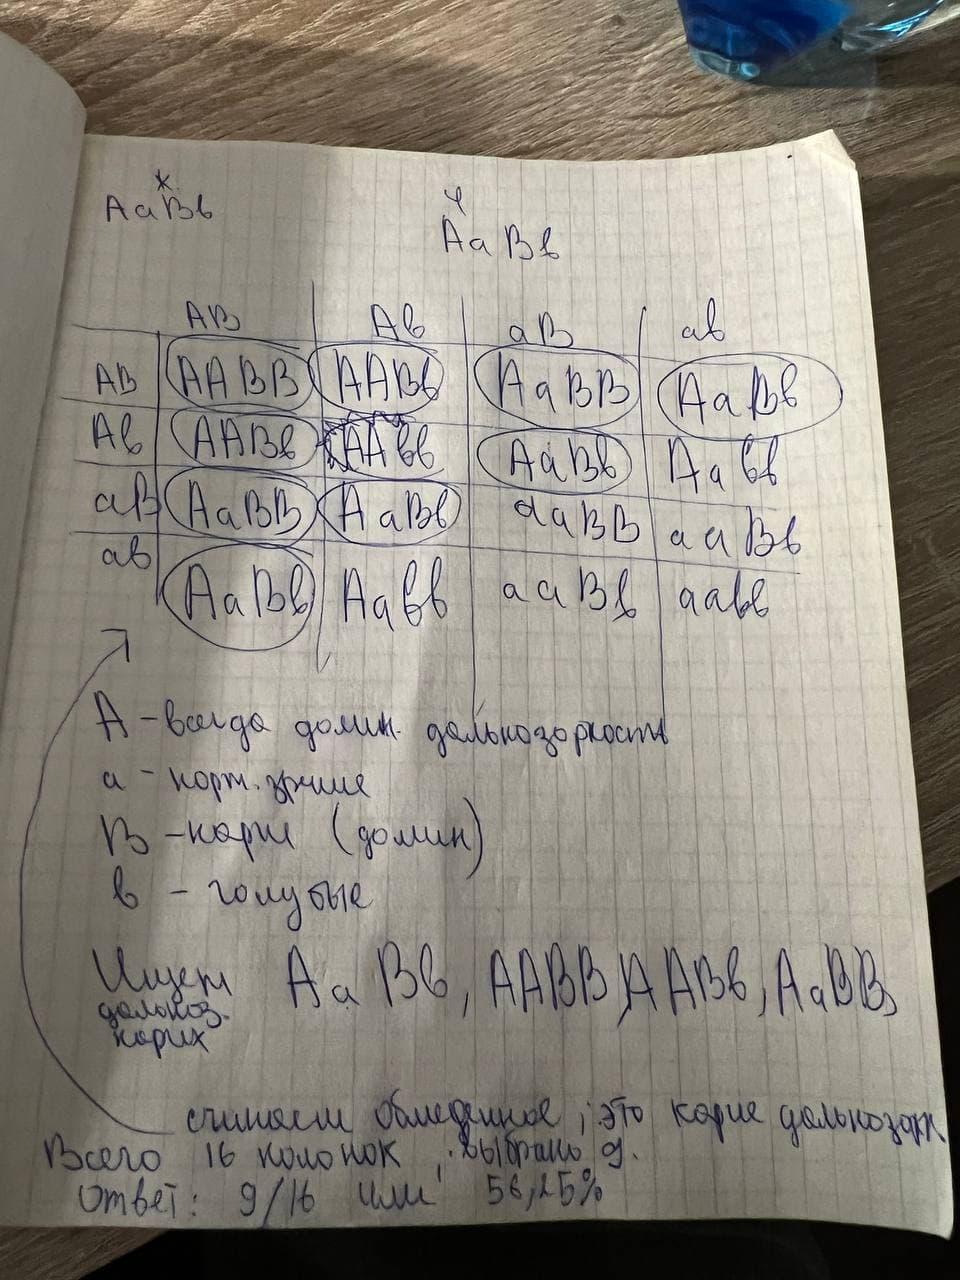 ж ч
АаВв АаВв
АВ Ав аВ ав
АВ ААВВ ААВв АаВВ АаВв
Ав ААВв ААвв АаВв Аавв
аВ АаВВ АаВв ааВВ ааВв
ав АаВв Аавв ааВв аавв
А - всегда домин. дальнозоркость
а - норм. зрение
В - карие (домин)
в - голубые
Ищем АаВв, ААВВ, ААВв, АаВВ,
дальноз.
карих
считаем обведенное, это карие дальнозорк
Всего 16 колонок, выбрано 9.
Ответ: 9/16 или 56,25%